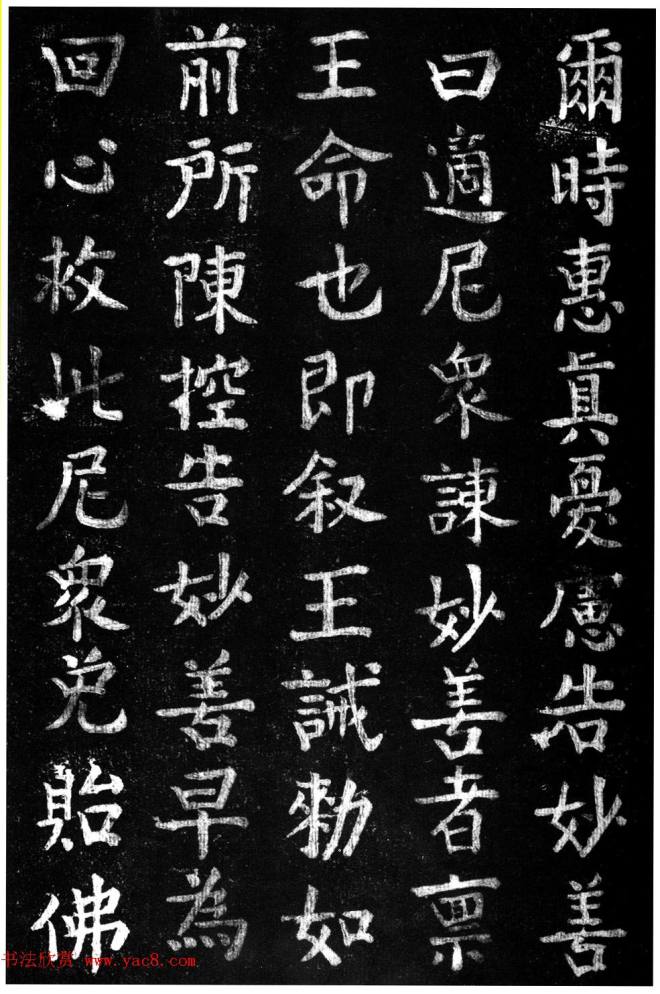 爾時惠真憂慮告妙善
曰適尼衆諫妙善者禀
王命也即叙王誡勑如
前所陳控告妙善早為
回心救此尼衆免貽佛
书法欣赏 www.yac8.com